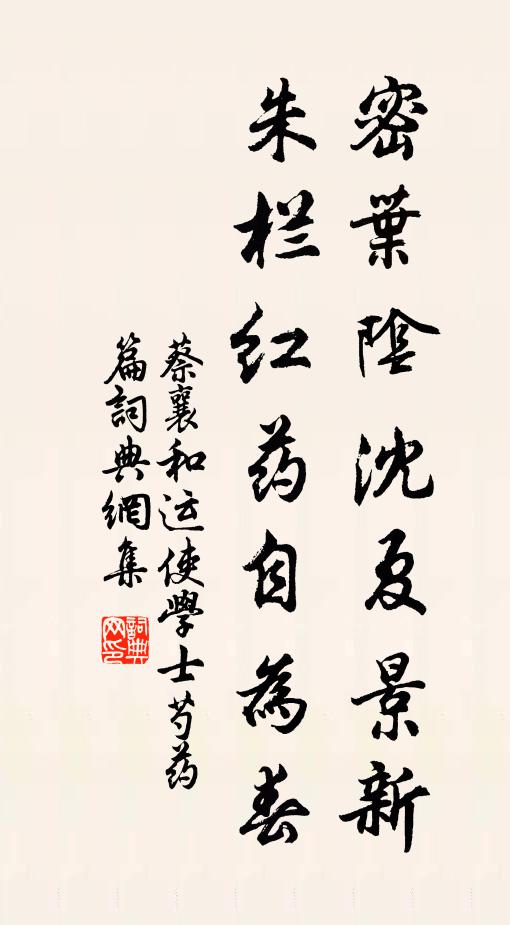 密葉陰沈夏景新
朱栏红药自為春
蔡襄和运使學士芍药
篇詞典網集
詞典网印